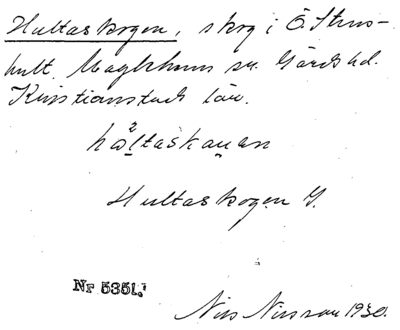 Hultaskogen, skog i Ö. Strus-
hult, Maglehems sn. Gärds hd.
Kristianstads län.
Hultaskogen G.
Nr 5351.
Nils Nilsson 1930.